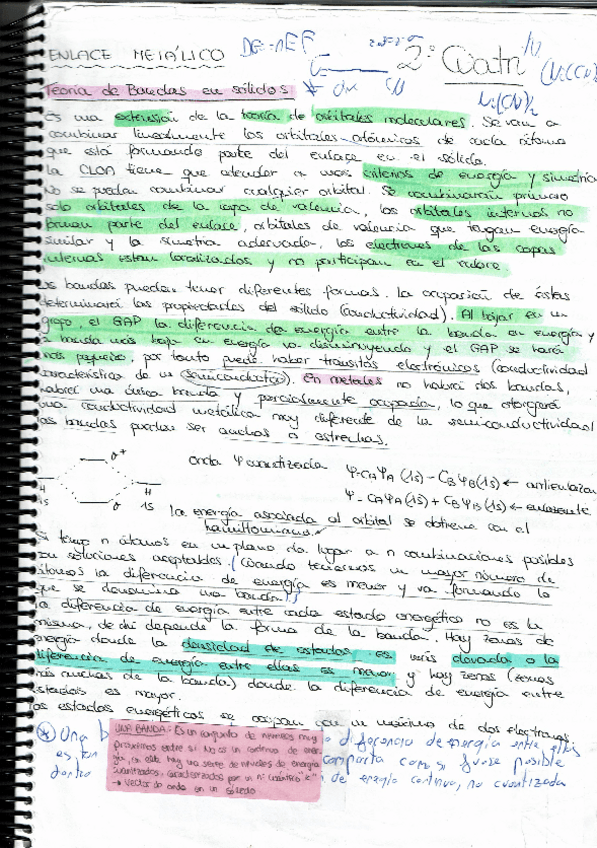 ENLACE METÁLICO
2º Cuatri
Teoría de Bandas en sólidos
Es una extensión de la teoría de orbitales moleculares. Se van a
combinar linealmente los orbitales atómicos de cada átomo
que está formando parte del enlace en el sólido.
La CLOA tiene que atender a unos criterios de energía y simetría
No se pueden combinar cualquier orbital. Se combinarán primero
solo orbitales de la capa de valencia, los orbitales internos no
forman parte del enlace, orbitales de valencia que tengan energía
similar y la simetría adecuada, los electrones de las capas
internas están localizados y no participan en el enlace.
Las bandas pueden tener diferentes formas. La ocupación de éstas
determinará las propiedades del sólido (conductividad). Al bajar en un
grupo, el GAP la diferencia de energía entre la banda en energía y
la banda más baja en energía va disminuyendo y el GAP se hará
más pequeño, por tanto puede haber tránsitos electrónicos (conductividad
característica de un semiconductor). En metales no habrá dos bandas,
habrá una única banda y parcialmente ocupada, lo que otorgará
una conductividad metálica muy diferente de la semiconductividad
Las bandas pueden ser anchas o estrechas.
σ*
onda Ψ cuantizada
Ψ- CAΨA(1s) - CBΨB(1s) ← antienlazan
H
1s
H
1s
σ
Ψ- CAΨA(1s) + CBΨB(1s) ← enlazante
La energía asociada al orbital se obtiene con el
hamiltoniano.
Si tengo n átomos en un plano da lugar a n combinaciones posibles
con soluciones aceptables. (Cuando tenemos un mayor número de
átomos la diferencia de energía es menor y va formando lo
que se denomina una banda.)
la diferencia de energía entre cada estado energético no es la
misma, de ahí depende la forma de la banda. Hay zonas de
energía donde la densidad de estados es más elevada o la
diferencia de energía entre ellas es menor y hay zonas (zonas
más anchas de la banda) donde la diferencia de energía entre
estados es mayor.
los estados energéticos se ocupan con un máximo de dos electrones
Una b
diferencia de energía entre ellos
es tan
comporta como si fuese posible
dentro
de energía continuo, no cuantizada
UNA BANDA: Es un conjunto de niveles muy
próximos entre sí. No es un continuo de ener-
gía, en ella hay una serie de niveles de energía
cuantizados, caracterizados por un nº cuántico "k"
→ Vector de onda en un sólido